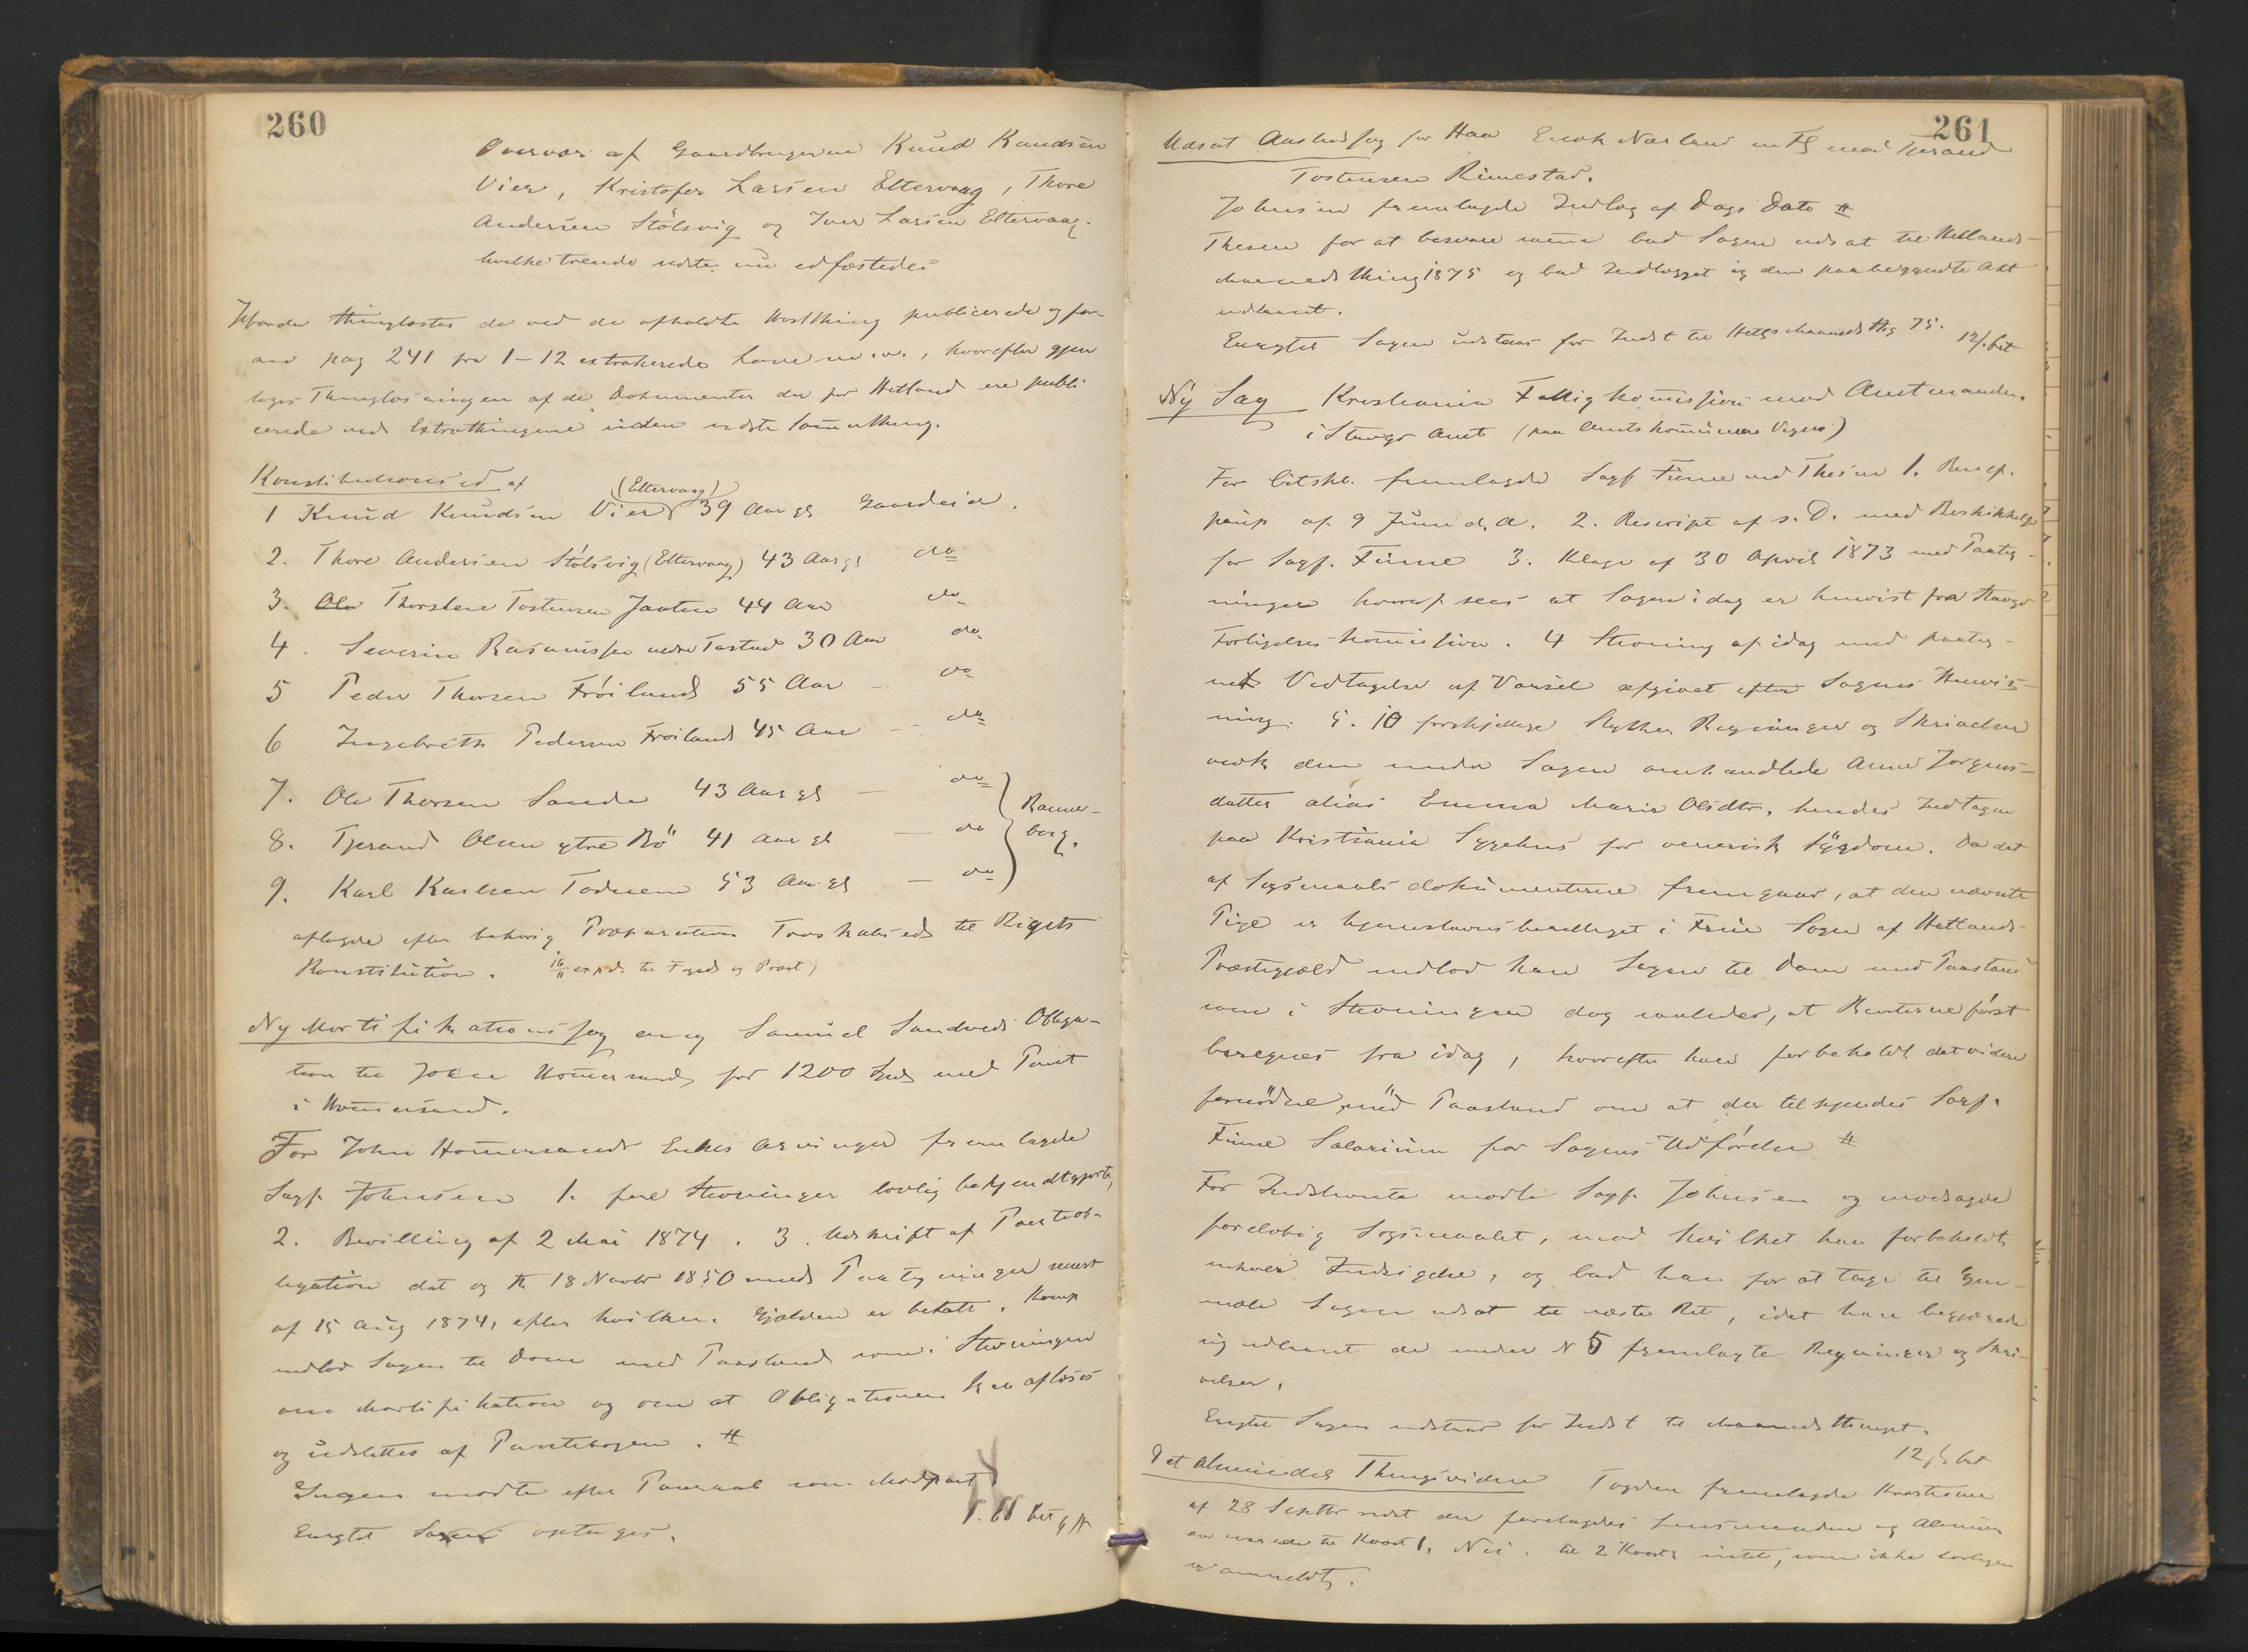 260
Overvær af Gaardbrugerne Knud Knudsen
Vier, Kristofer Larsen Eltervaag, Thore
Andersen Stölsvig og Iver Larsen Eltervaag.
hvilke trende sidste nu edfæstedes
thinglæstes de ved de afholdte Høstthing publicerede og for-
an pag 241 fra 1-12 extraherede Love m. v., hvorefter gjen
toges Thinglæsningen af de Dokumenter der for Hetland ere publi
cerede ved Extrathingene siden sidste Somerthing.
Konstitutionsed af
(Eltervaag)
1 Knud Knudsen Vier 39 Aar gl Gaardeier.
2. Thore Andersen Stölsvig (Eltervaag) 43 Aar gl do
3. Thorsten Tostensen Jaatten 44 Aar do
4. Severin Rasmussen nedre Tastad 30 Aar do
5 Peder Thorsen Fröiland 55 Aar — do
6 Ingebreth Pedersen Fröiland 45 Aar — do
7. Ole Thorsen Sande 43 Aar gl — do
Renne-
8. Tjerand Olsen ytre Bö 41 Aar gl — do
berg.
9. Karl Karlsen Todnem 53 Aar gl — do
aflagde efter behörig Præparation Troskabsed til Rigets
Konstitution. 16/11 exped. til Foged og Præst)
Ny Mortifikationssag ang Samuel Sandveds Obliga-
tion til John Homersand for 1200 Spd med Pant
i Homersand.
For John Homersands Enkes Arvinger fremlagde
Sagf. Johnsen 1. Stevninger lovlig bekjendtgjorte,
2. Bevilling af 2 Mai 1874. 3. Udskrift af Panteob-
ligation dat og th 18 Novbr 1850 med Paategninger senest
af 15 Aug 1874, efter hvilken Gjælden er betalt. Komp
indlod Sagen til Dom med Paastand som i Stevningen
om Mortifikation og om at Obligationen kan aflæses
og udslettes af Pantebogen. #
Ingen mødte efter Paaraab som Modpart
Eragtet Sagen optages.
261
Udsat Aastedssag for Haa Enok Nærland m Fl mod Tjerand
Tostensen Rimestad.
Johnsen fremlagde Indlæg af Dags Dato #
Thesen for at besvare samme bad Sagen udsat til Hetlands-
Maaneds thing 1875 og bad Indlægget og den paabegyndte Akt
udlaant.
Eragtet Sagen udstaar for Indst til Hetls Maaneds thg 75.
12/. bet
Ny Sag Kristiania Fattigkomission mod Amtmanden
i Stavgr Amt (paa Amtskomunens Vegne)
For Citskb. fremlagde Sagf Finne ved Thesen 1. Benef.
paup af 9 Juni d. A. 2. Rescript af s. D. med Beskikkelse
for Sagf. Finne 3. Klage af 30 April 1873 med Paateg-
ninger hvoraf sees at Sagen idag er henvist fra Stavgr
Forligelseskomission. 4 Stevning af idag med paateg-
net Vedtagelse af Varsel afgivet efter Sagens Henvis-
ning. 5. 10 forskjellige Stykker Regninger og Skrivelser
vedk den under Sagen omhandlede Anne Jörgens-
datter alias Emma Marie Olsdtr, hendes Indtagen
paa Kristiania Sygehus for venerisk Sygdom. Da det
af Søgsmaalsdokumenterne fremgaar, at den nævnte
Pige er hjemstavnsberettiget i Frue Sogn af Hetlands-
Præstegjæld indlod han Sagen til Dom med Paastand
som i Stevningen dog saaledes, at Renterne först
beregnes fra idag, hvorefter han forbeholdt det videre
fornödne, med Paastand om at der tilkjendes Sagf.
Finne Salarium for Sagens Udförelse #
For Indstevnte mødte Sagf. Johnsen og modsagde
foreløbig Søgsmaalet, mod hvilket han forbeholdt
enhver Indsigelse, og bad han for at tage til Gjen-
mæle Sagen udsat til næste Ret, idet han begjærede
sig udlaant de under N 5 fremlagte Regninger og Skri-
velser.
Eragtet Sagen udstaar for Indst til Maanedsthinget.
12 ß bet
Det almindelige Thingsvidne Fogden fremlagde Kvæstioner
af 28 Septbr sidst der forelagdes Lensmanden og Almuen
der svarede til Kvæst 1. Nei. til 2 Kvæst intet, som ikke lovligen
er anmeldt.